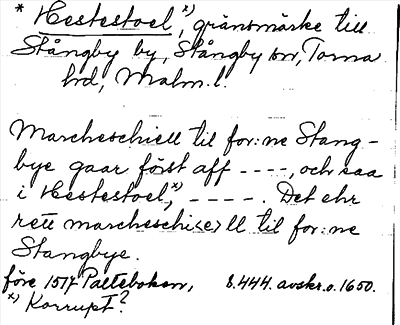 * Hestestoel ˣ⁾, gränsmärke till
Stångby by, Stångby sn, Torna
hd, Malm. l.
Marcheschiell til for:ne Stang-
bye gaar först aff ----, och saa
i Hestestoel,ˣ⁾ -----. Det ehr
rett marcheschi<e>ll til for:ne
Stangbye.
före 1517 Palteboken, s. 444. avskr. o. 1650.
ˣ⁾ Korrupt?